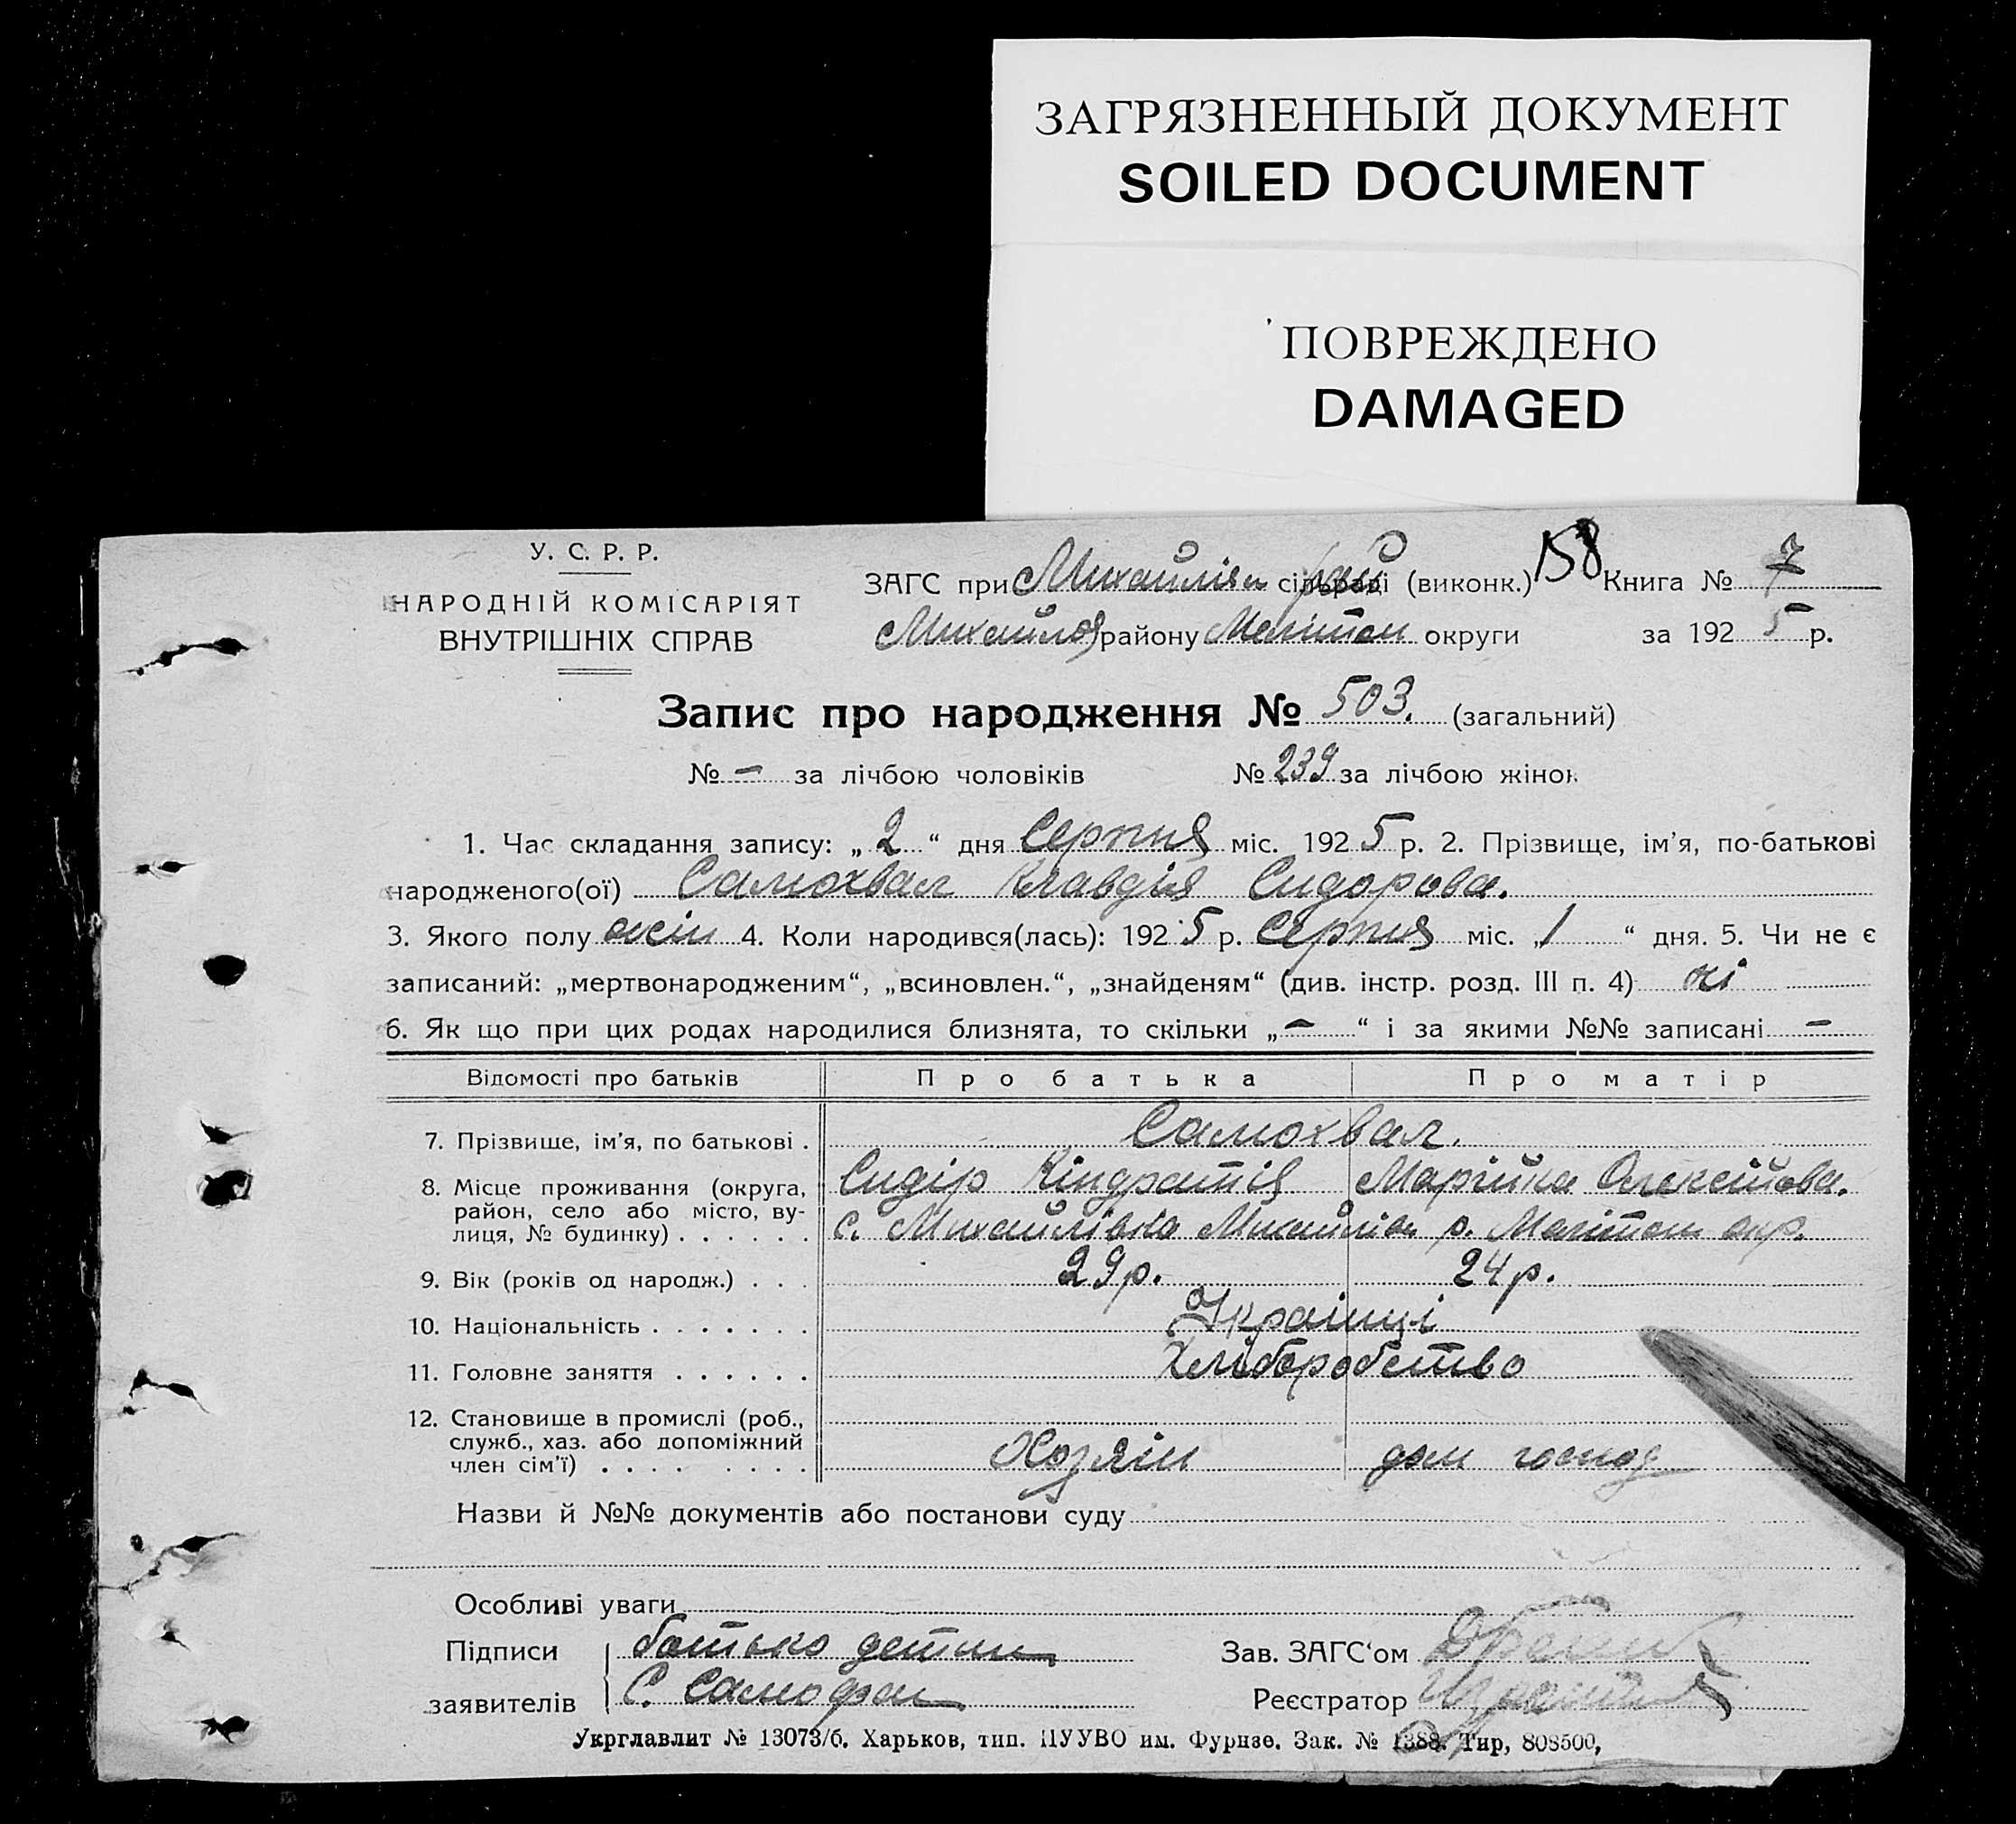 ЗАГРЯЗНЕННЫЙ ДОКУМЕНТ
SOILED DOCUMENT
ПОВРЕЖДЕНО
DAMAGED
У. С. Р. Р.
НАРОДНІЙ КОМІСАРІЯТ
ВНУТРІШНІХ СПРАВ
ЗАГС при Михайлівс сільраді (виконк.) 158 Книга № 7
Михайлов району Мелітоп округи за 192 5 р.
Запис про народження № 503. (загальний)
№ - за лічбою чоловіків № 239 за лічбою жінок
1. Час складання запису: „ 2 “ дня Серпня міс. 192 5 р. 2. Прізвище, ім'я, по-батькові
народженого(ої) Самохвал Клавдія Сидорова.
3. Якого полу жін 4. Коли народився(лась): 192 5 р. Серпня міс. „ 1 “ дня. 5. Чи не є
записаний: „мертвонародженим“, „всиновлен.“, „знайденям“ (див. інстр. розд. III п. 4) ні
6. Як що при цих родах народилися близнята, то скільки „ - “ і за якими №№ записані -
Відомості про батьків Про батька Про матір
7. Прізвище, ім'я, по батькові . Самохвал.
Сидір Кіндратів Марійка Олексійова.
8. Місце проживання (округа, район, село або місто, ву-
лиця, № будинку) . . . . . . с. Михайлівка Михайлів р. Мелітоп окр.
9. Вік (років од народж.) . . . 29 р. 24 р.
10. Національність . . . . . . . Українці
11. Головне заняття . . . . . . Хліборобство
12. Становище в промислі (роб.,
служб., хаз. або допоміжний
член сім'ї) . . . . . . . . Хозяїн дом господ
Назви й №№ документів або постанови суду
Особливі уваги
Підписи батько детини Зав. ЗАГС'ом
заявителів С. Реєстратор
Укрглавлит № 13073/б. Харьков, тип. ЦУУВО им. Фрунзе. Зак. № 1388. Тир, 808500,